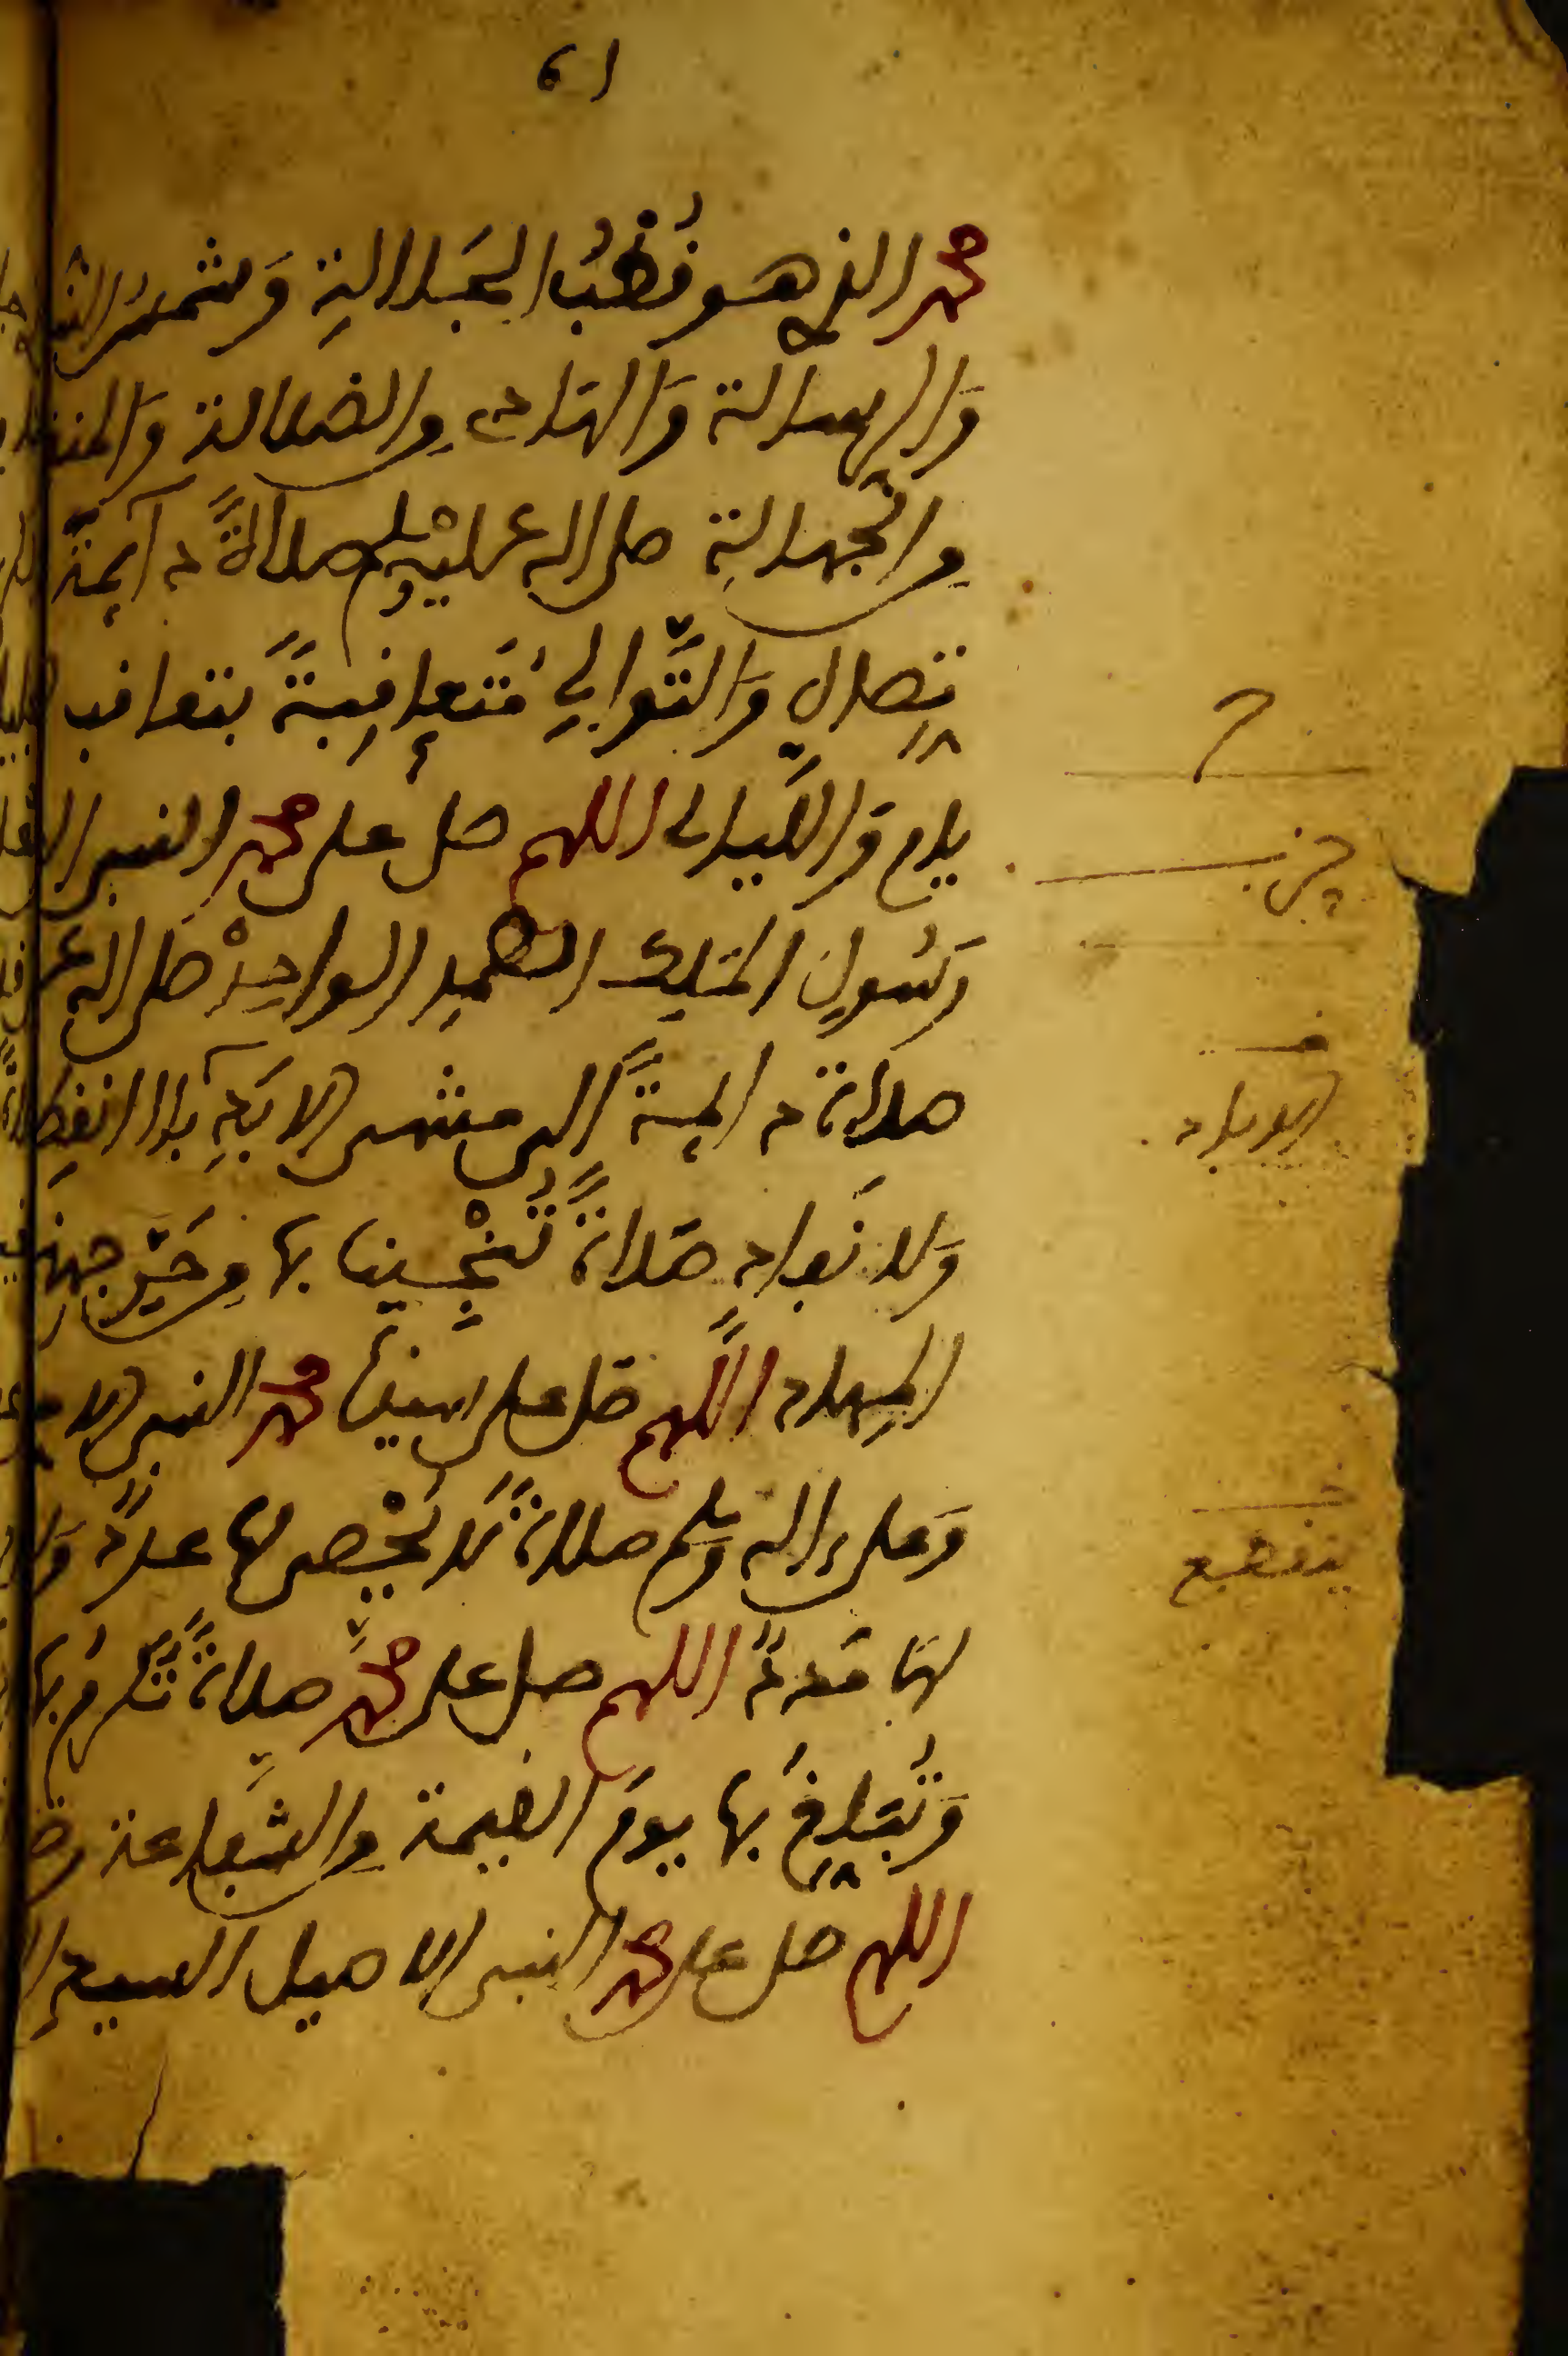 محمد الذي هو قُطْبُ الجَلالةِ وَشمسُ
وَالرسالة وَالهَادى مِن الضلالة وَالمنقذ
مِن الجهالةِ صلى الله عليْه وسلم صلاةً دآئمةَ
تِّصالِ وَالتَّوالي مُتَعاقِبةً بتعاقب
يام وَالليالى اللهم صل على محمد النبى
رَسُولِ المَلِك الصَّمدِ الواحِدْ صَلى الله
صلاة دائمةً الى منتهى الابَدِ بلا انقطاع
وَلا نَفاد صَلاةً تُنْجِينا بها مِن حَرّ جهنم
المِهاد اللَّهم صَل على سيدنا محمد النبى الا
وَعلى ءاله وسلم صلاةً لَا يُحْصى لها عددٌ وَلا
لهَا مَددٌ اللهم صل على محمدٍ صلاةً تُكرمُ بها
وَتُبَلِّغُ بها يومَ القيمة مِن الشَّفاعة
اللهم صل على محمد النبى الاصيل السيدِ
حزب
ينقطع